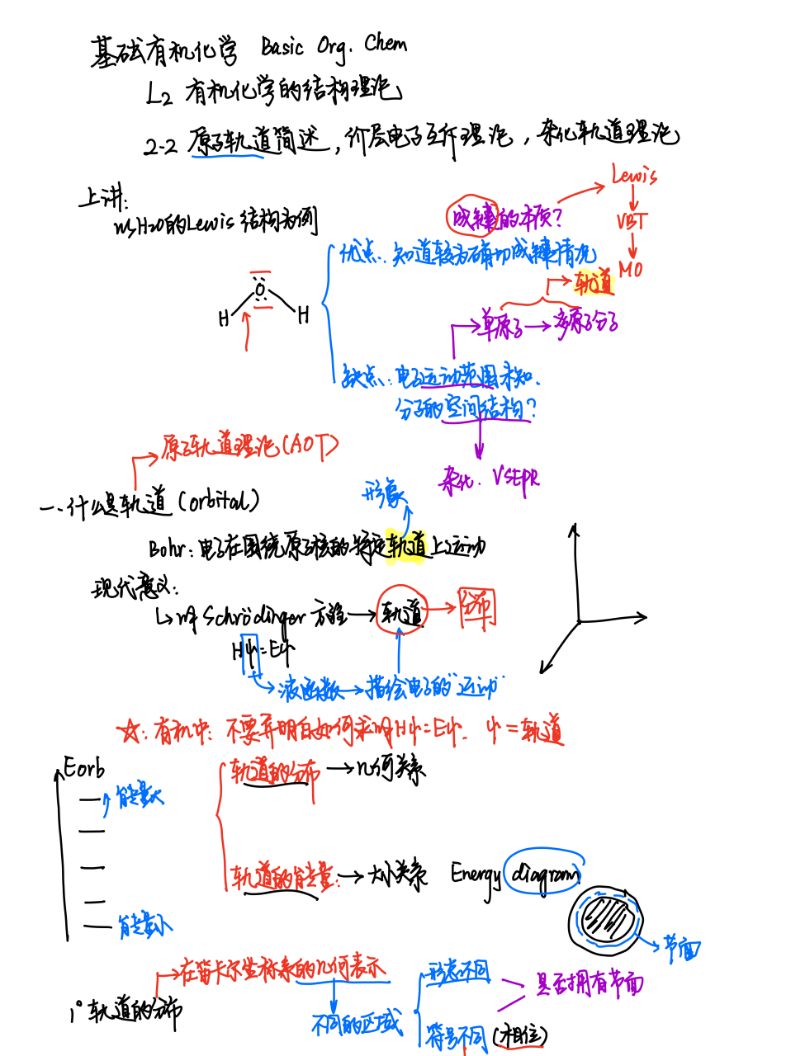 基础有机化学 Basic Org. Chem
L2 有机化学的结构理论
2-2 原子轨道简述，价层电子互斥理论，杂化轨道理论
上讲：
以H2O的Lewis结构为例
成键的本质？
Lewis
VBT
MO
优点：知道较为确切成键情况
轨道
H O H
单原子 → 多原子分子
缺点：电子运动范围未知．
分子的空间结构？
杂化．VSEPR
原子轨道理论(AOT)
一、什么是轨道 (orbital)
形象
Bohr：电子在围绕原子核的特定轨道上运动
现代意义：
解Schrödinger 方程 → 轨道 → 分布
Hψ=Eψ
波函数 → 描绘电子的"运动"
☆：有机中：不要弄明白如何求解Hψ=Eψ．ψ=轨道
Eorb
能量大
能量小
轨道的分布 → 几何关系
轨道的能量： → 大小关系 Energy diagram
节面
1° 轨道的分布
在笛卡尔坐标系的几何表示
不同的区域
形态不同
符号不同 (相位)
是否拥有节面